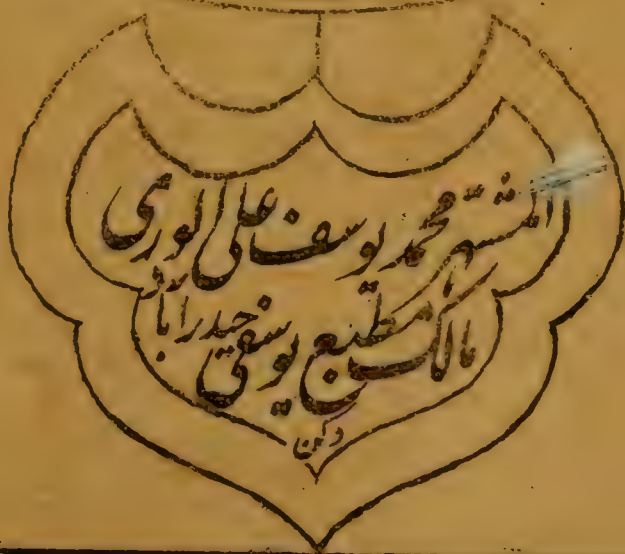 المشتهر محمد یوسف علی لوری
مالک مطبع یوسفی حیدرآباد
دکن